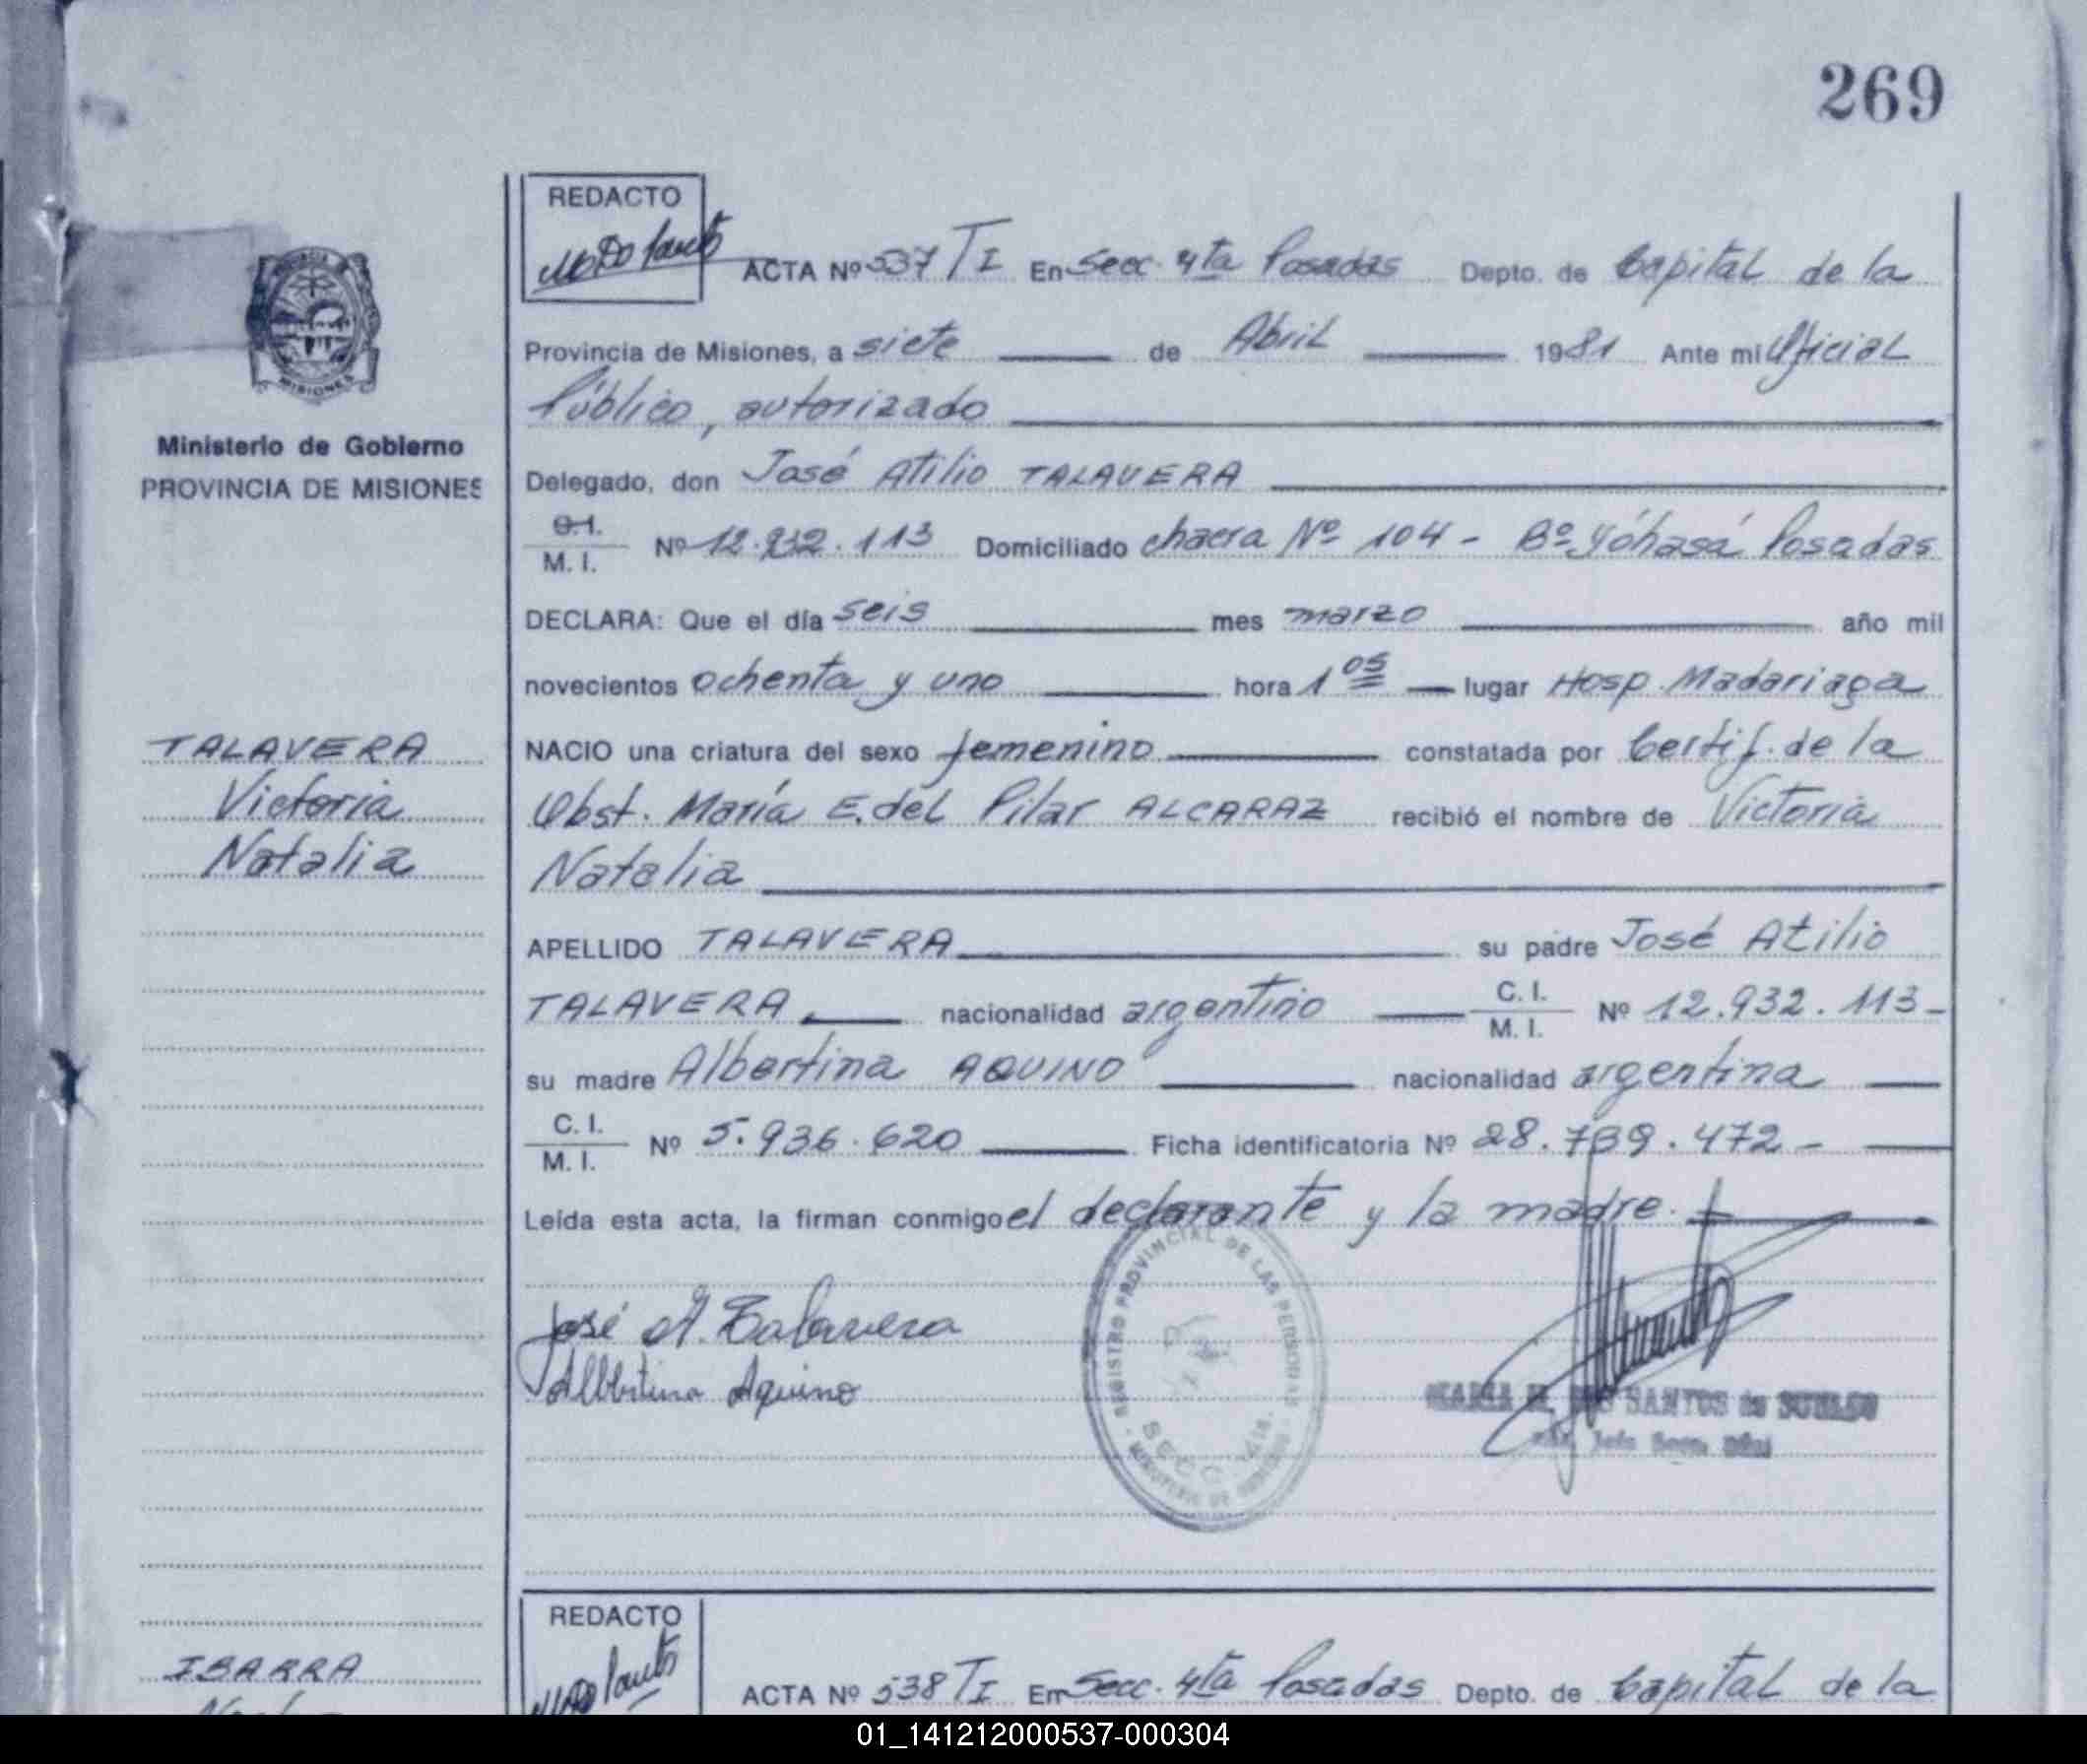 269
REDACTO
ACTA Nº 537 TI En Secc. 4ta Posadas Depto. de Capital de la
Provincia de Misiones, a siete de Abril 1981 Ante mi Oficial
Público, autorizado
Ministerio de Gobierno
PROVINCIA DE MISIONES
Delegado, don José Atilio TALAVERA
C.I.
M. I. Nº 12.932.113 Domiciliado chacra Nº 104 - Bº Yóhasá Posadas
DECLARA: Que el día seis mes marzo año mil
novecientos ochenta y uno hora 1 05 lugar Hosp. Madariaga
TALAVERA
Victoria
Natalia
NACIO una criatura del sexo femenino constatada por Certif. de la
Obst. María E. del Pilar ALCARAZ recibió el nombre de Victoria
Natalia
APELLIDO TALAVERA su padre José Atilio
TALAVERA nacionalidad argentino C. I. M. I. Nº 12.932.113-
su madre Albertina AQUINO nacionalidad argentina
C. I.
M. I. Nº 5.936.620 Ficha identificatoria Nº 28.739.472-
Leída esta acta, la firman conmigo el declarante y la madre.
José A. Talavera
Albertina Aquino
REGISTRO PROVINCIAL DE LAS PERSONAS
SECC. 4ta.
MINISTERIO DE GOBIERNO
MARIA M. DOS SANTOS de SUELDO
REDACTO
IBARRA
ACTA Nº 538 TI En Secc. 4ta Posadas Depto. de Capital de la
01_141212000537-000304